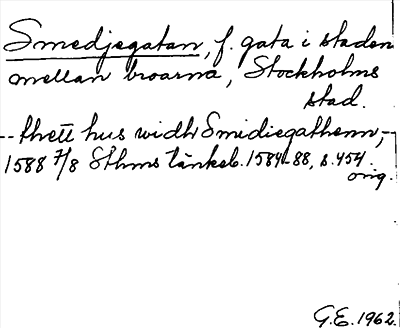 Smedjegatan, f. gata i staden
mellan broarna, Stockholms
stad.
-- thett hus widh Smidiegathenn, --
1588 7/8 Sthms tänkeb. 1584-88, s. 454.
orig.
G.E. 1962.